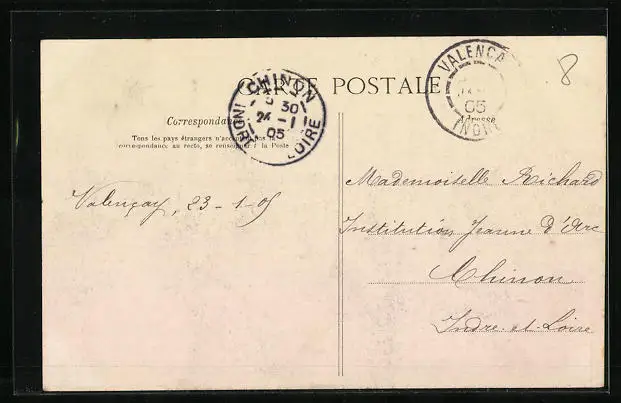 CARTE POSTALE
CHINON
INDRE
LOIRE
30
24 - 1
05
VALENCA
05
INDRE
8
Correspondance
Adresse
Tous les pays étrangers n'acceptent pas
correspondance au recto, se renseigner à la Poste
Valençay, 23-1-05
Mademoiselle Richard
Institution Jeanne d'Arc
Chinon
Indre-et-Loire